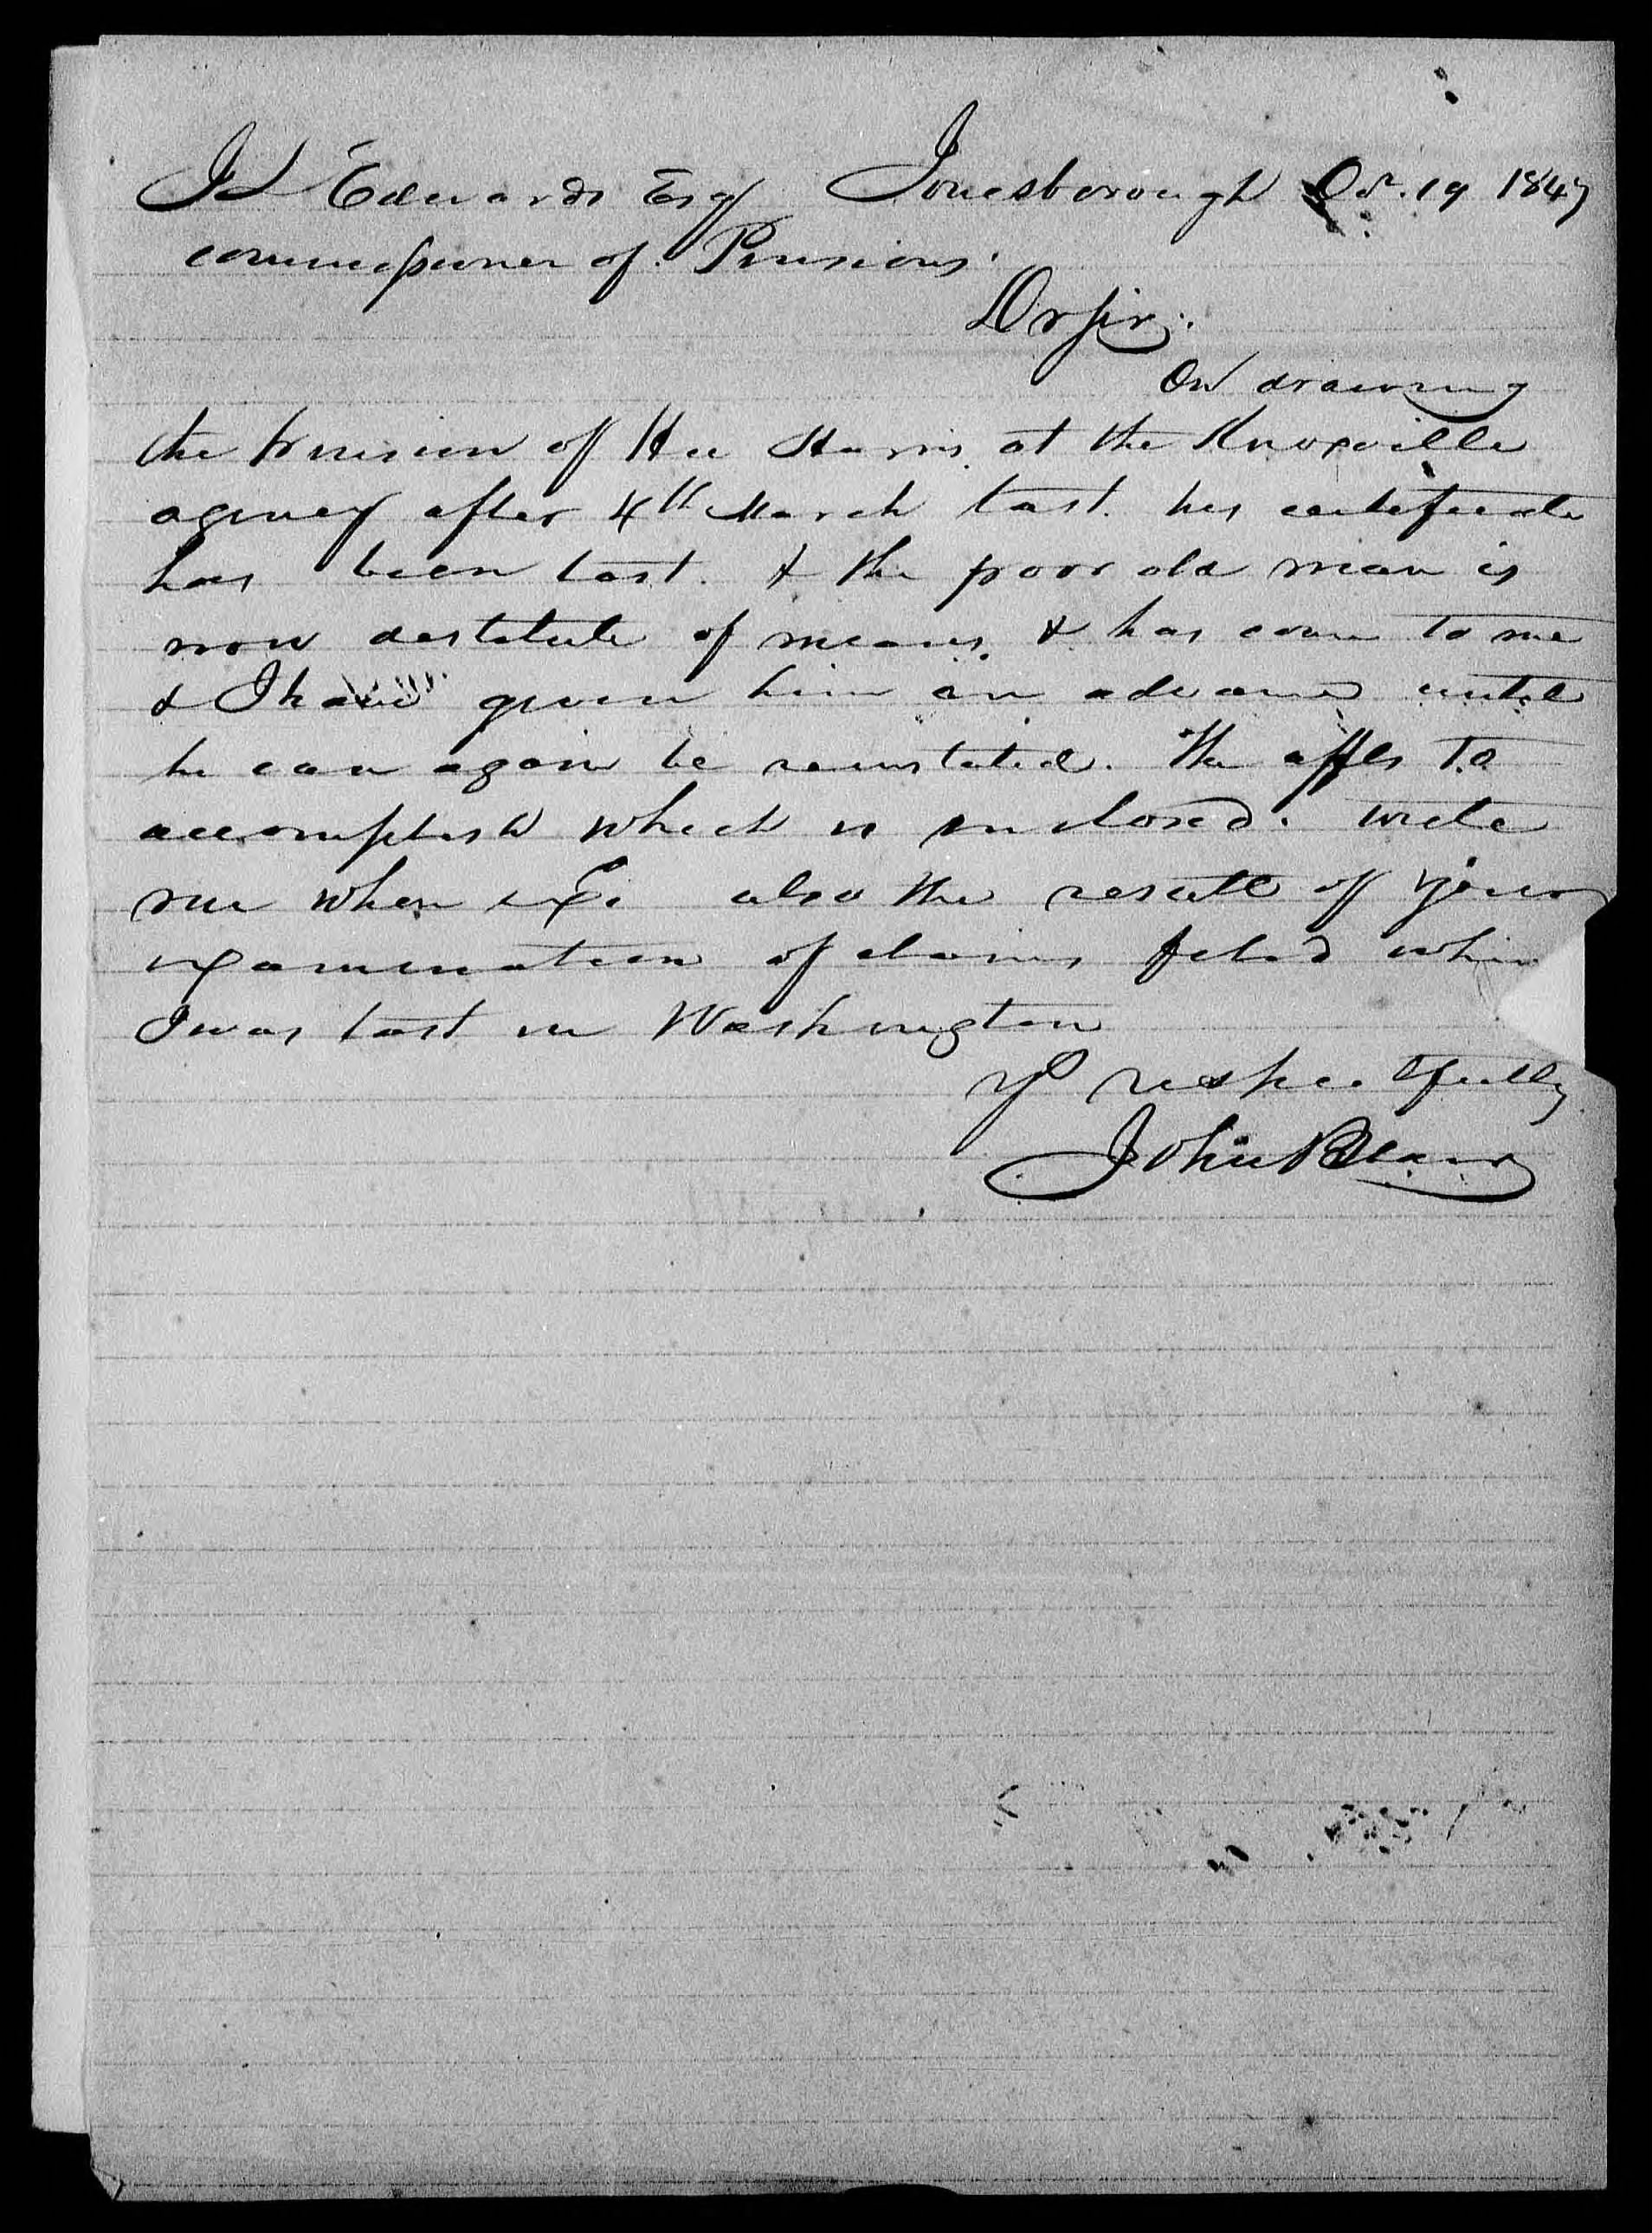 J L Edwards Esq Jonesborough Oct. 19 1847
commissioner of Pensions.
Dr Sir;
On drawing
the pension of Harris at the Knoxville
agency after 4th March last. his certificate
has been lost. & the poor old man is
now destitute of means. & has come to me
& I have given him an advance until
he can again be reinstated. The affts to
accomplish which is enclosed. write
me when also the result of your
examination of claims filed when
I was last in Washington
Yr respectfully
John Blair